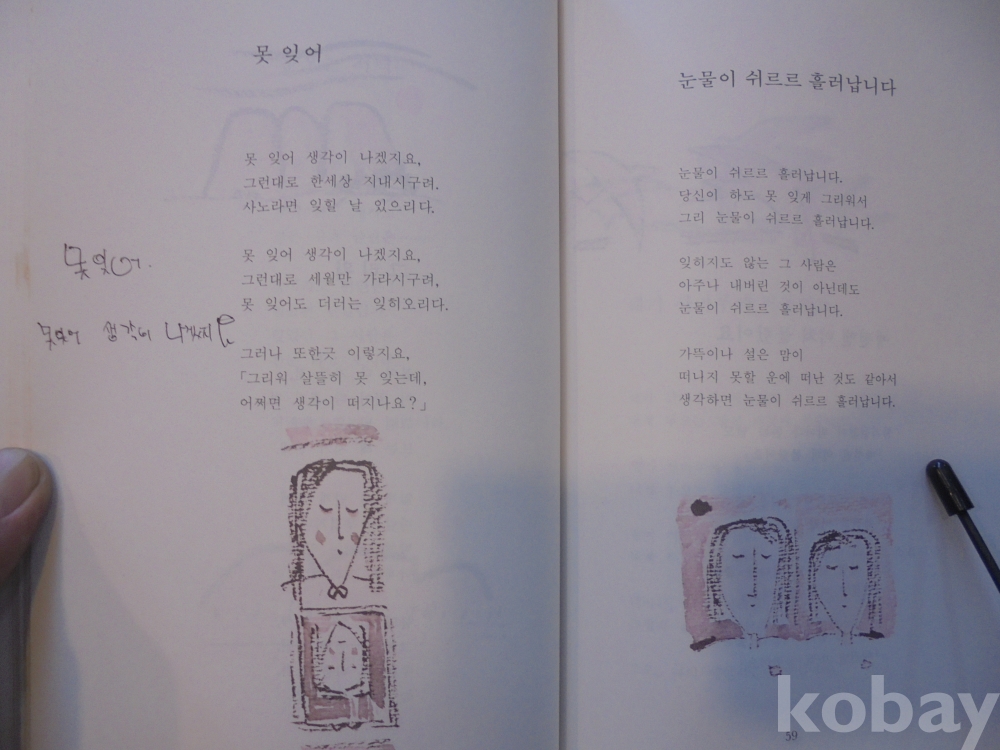 못 잊어
못 잊어 생각이 나겠지요,
그런대로 한세상 지내시구려.
사노라면 잊힐 날 있으리다.
못 잊어 생각이 나겠지요,
그런대로 세월만 가라시구려,
못 잊어도 더러는 잊히오리다.
그러나 또한긋 이렇지요,
「그리워 살뜰히 못 잊는데,
어쩌면 생각이 떠지나요?」
못잊어.
못잊어 생각이 나겠지요
눈물이 쉬르르 흘러납니다
눈물이 쉬르르 흘러납니다.
당신이 하도 못 잊게 그리워서
그리 눈물이 쉬르르 흘러납니다.
잊히지도 않는 그 사람은
아주나 내버린 것이 아닌데도
눈물이 쉬르르 흘러납니다.
가뜩이나 설은 맘이
떠나지 못할 운에 떠난 것도 같아서
생각하면 눈물이 쉬르르 흘러납니다.
59
kobay